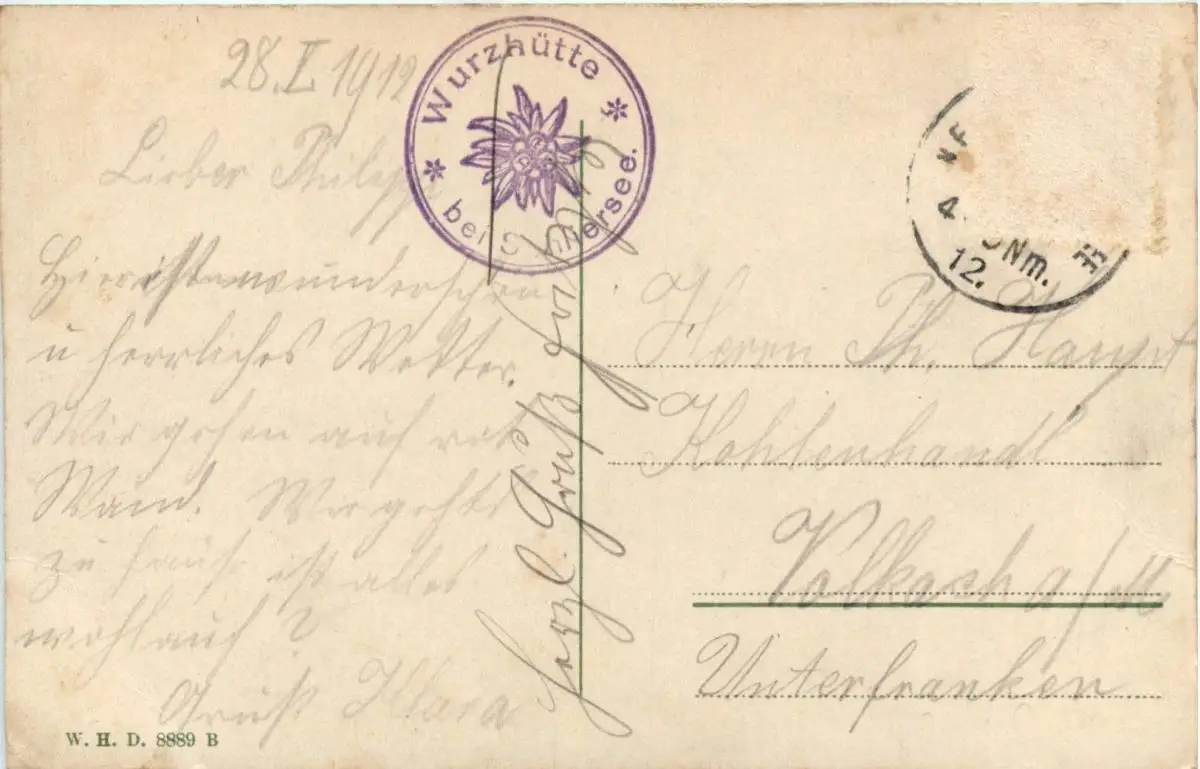 28.I 1912
Wurzhütte
bei S nkersee.
Lieber Philipp
Hier ist es wunderschön
u herrliches Wetter.
Wir gehen auf rote
Wand. Wie gehts
zu Haus ist alles
wohlauf?
Gruß Klara
Herzl. Gruß
Nm.
12.
Herrn Ph. Haupt
Kohlenhandl
Volkach a/M
Unterfranken
W. H. D. 8889 B